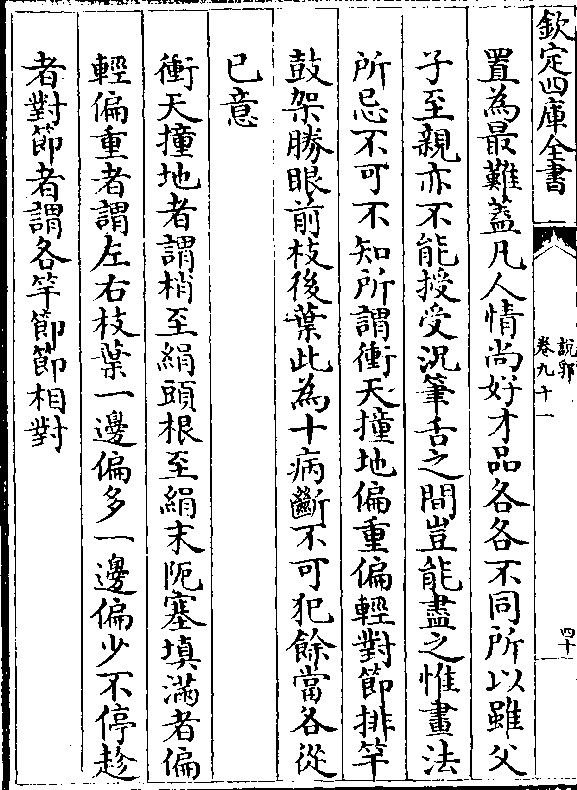 欽定四庫全書
說郛
卷九十一
四十
置為最難蓋凡人情尚好才品各各不同所以雖父
子至親亦不能授受況筆舌之間豈能盡之惟畫法
所忌不可不知所謂衝天撞地偏重偏輕對節排竿
鼓架勝眼前枝後葉此為十病斷不可犯餘當各從
己意
衝天撞地者謂梢至絹頭根至絹末阨塞填滿者偏
輕偏重者謂左右枝葉一邊偏多一邊偏少不停趁
者對節者謂各竿節節相對